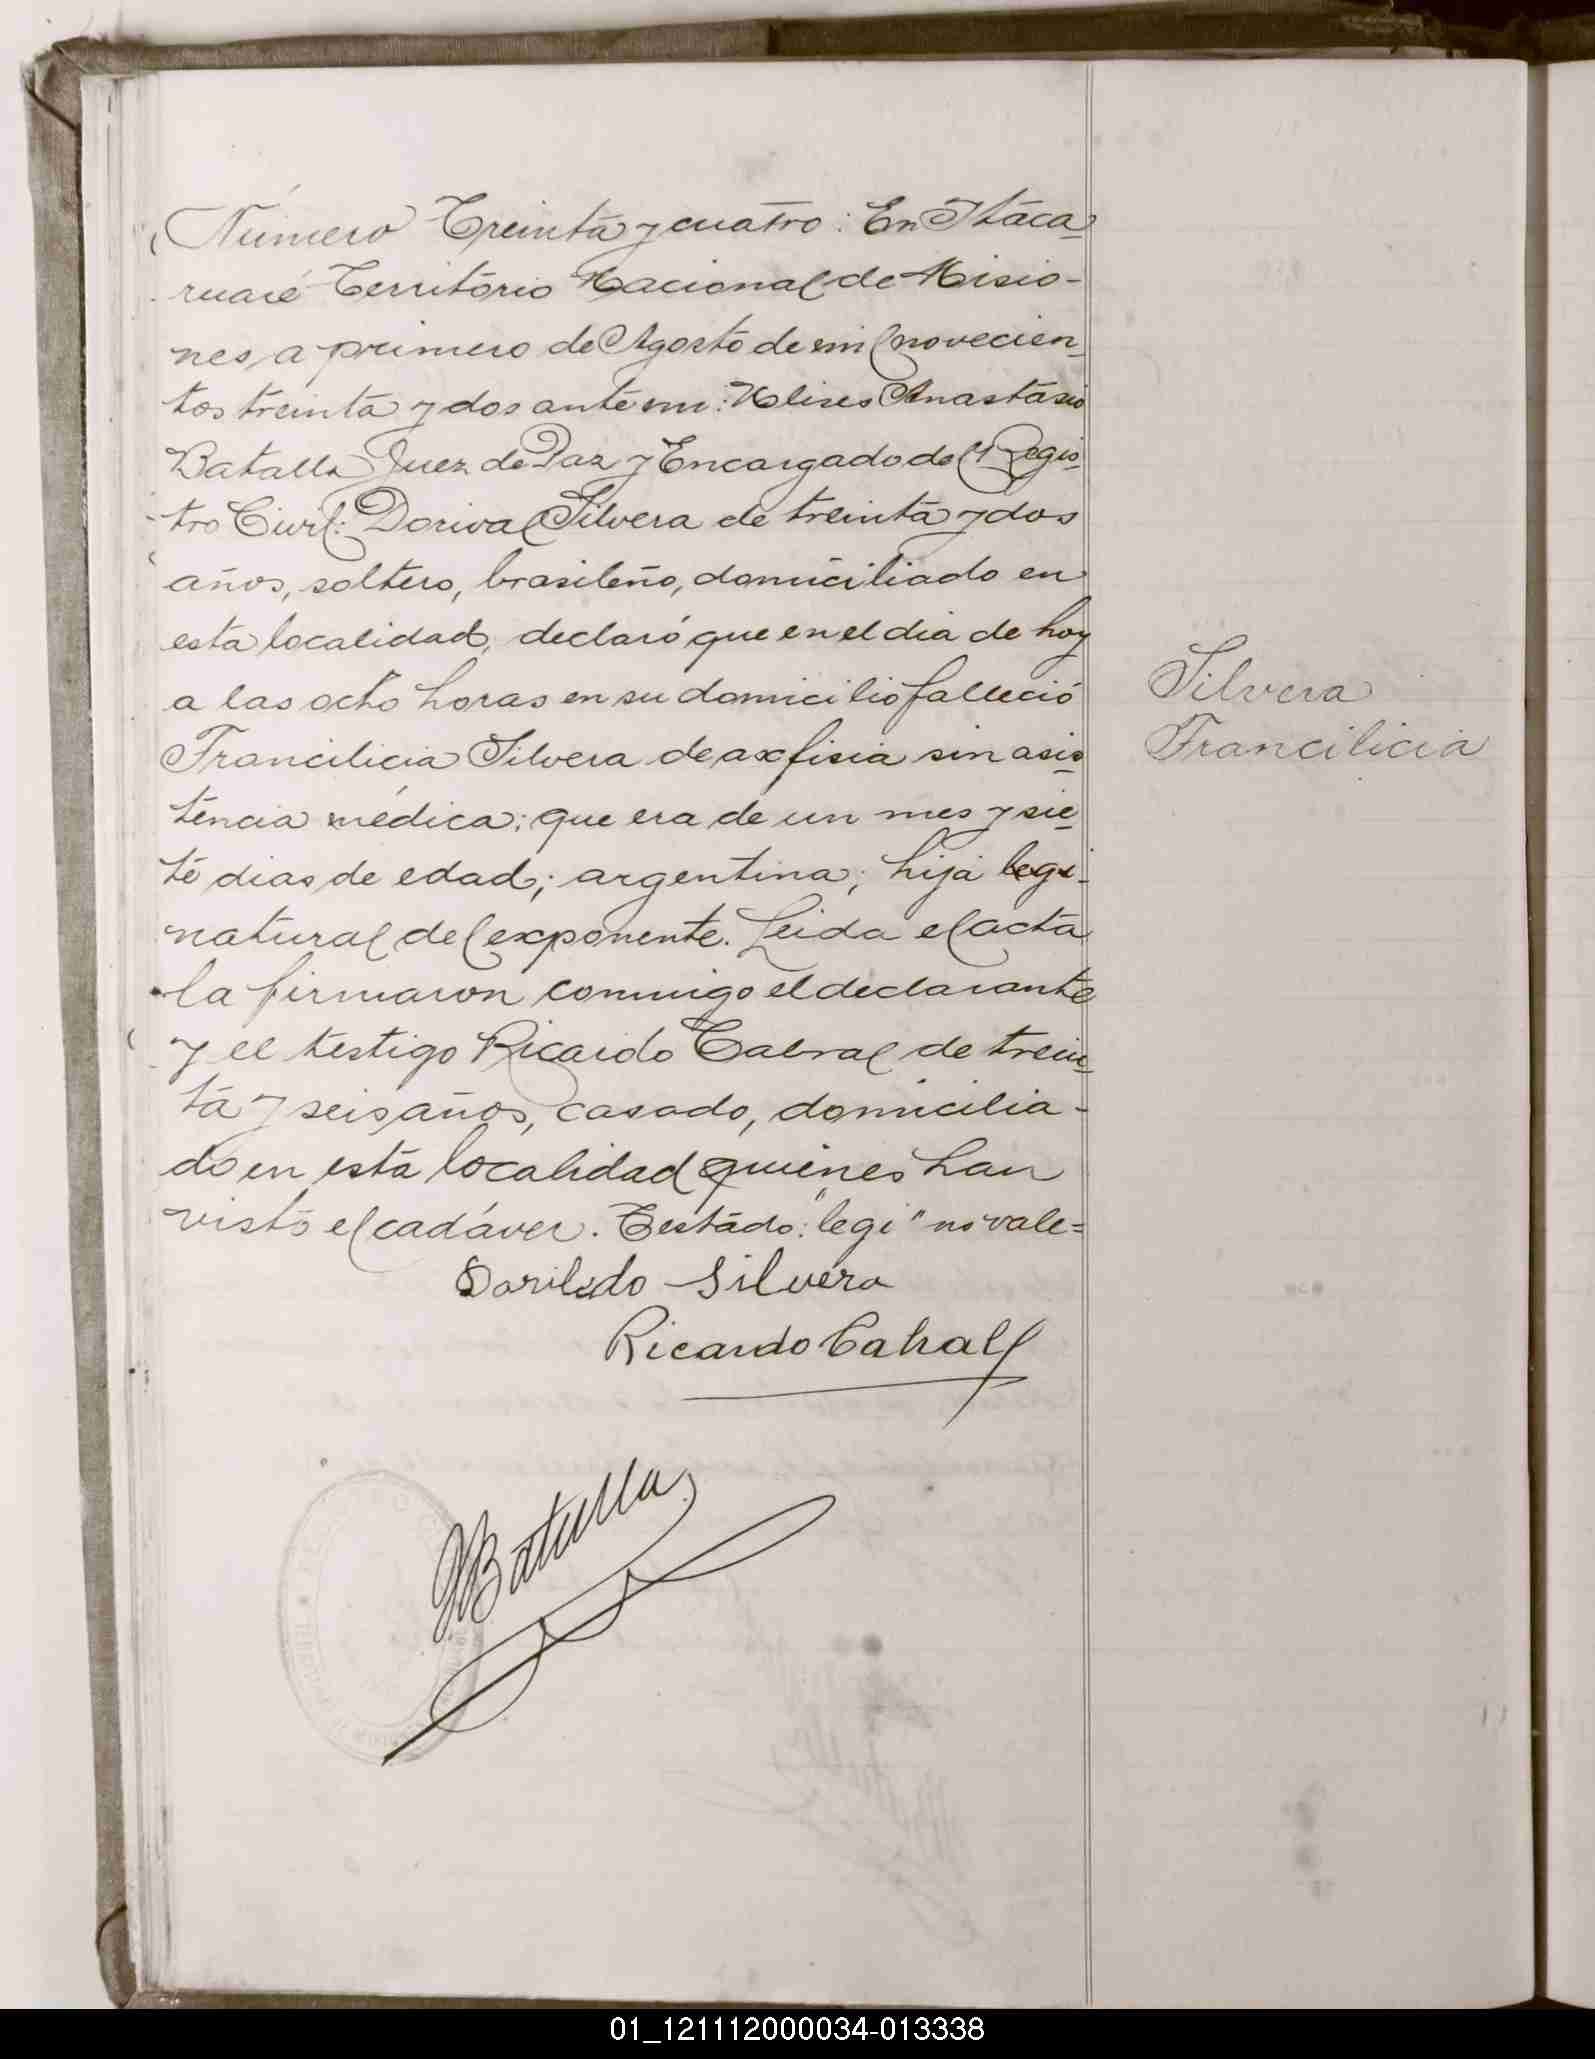 Número Treinta y cuatro: En Itaca-
ruaré Territorio Nacional de Misio-
nes, a primero de Agosto de mil novecien-
tos treinta y dos ante mi: Ulises Anastasio
Batalla Juez de Paz y Encargado del Regis-
tro Civil: Dorival Silvera de treinta y dos
años, soltero, brasileño, domiciliado en
esta localidad, declaró que en el dia de hoy
a las ocho horas en su domicilio falleció
Francilicia Silvera de axfisia sin asis-
tencia médica; que era de un mes y sie-
te dias de edad; argentina; hija legi-
natural del exponente. Leida el acta
la firmaron conmigo el declarante
y el testigo Ricardo Cabral de trein-
ta y seis años, casado, domicilia-
do en esta localidad quienes han
visto el cadáver. Testado: "legi" no vale=
Silvera
Francilicia
Dorildo Silvera
Ricardo Cabral
Batalla
01_121112000034-013338